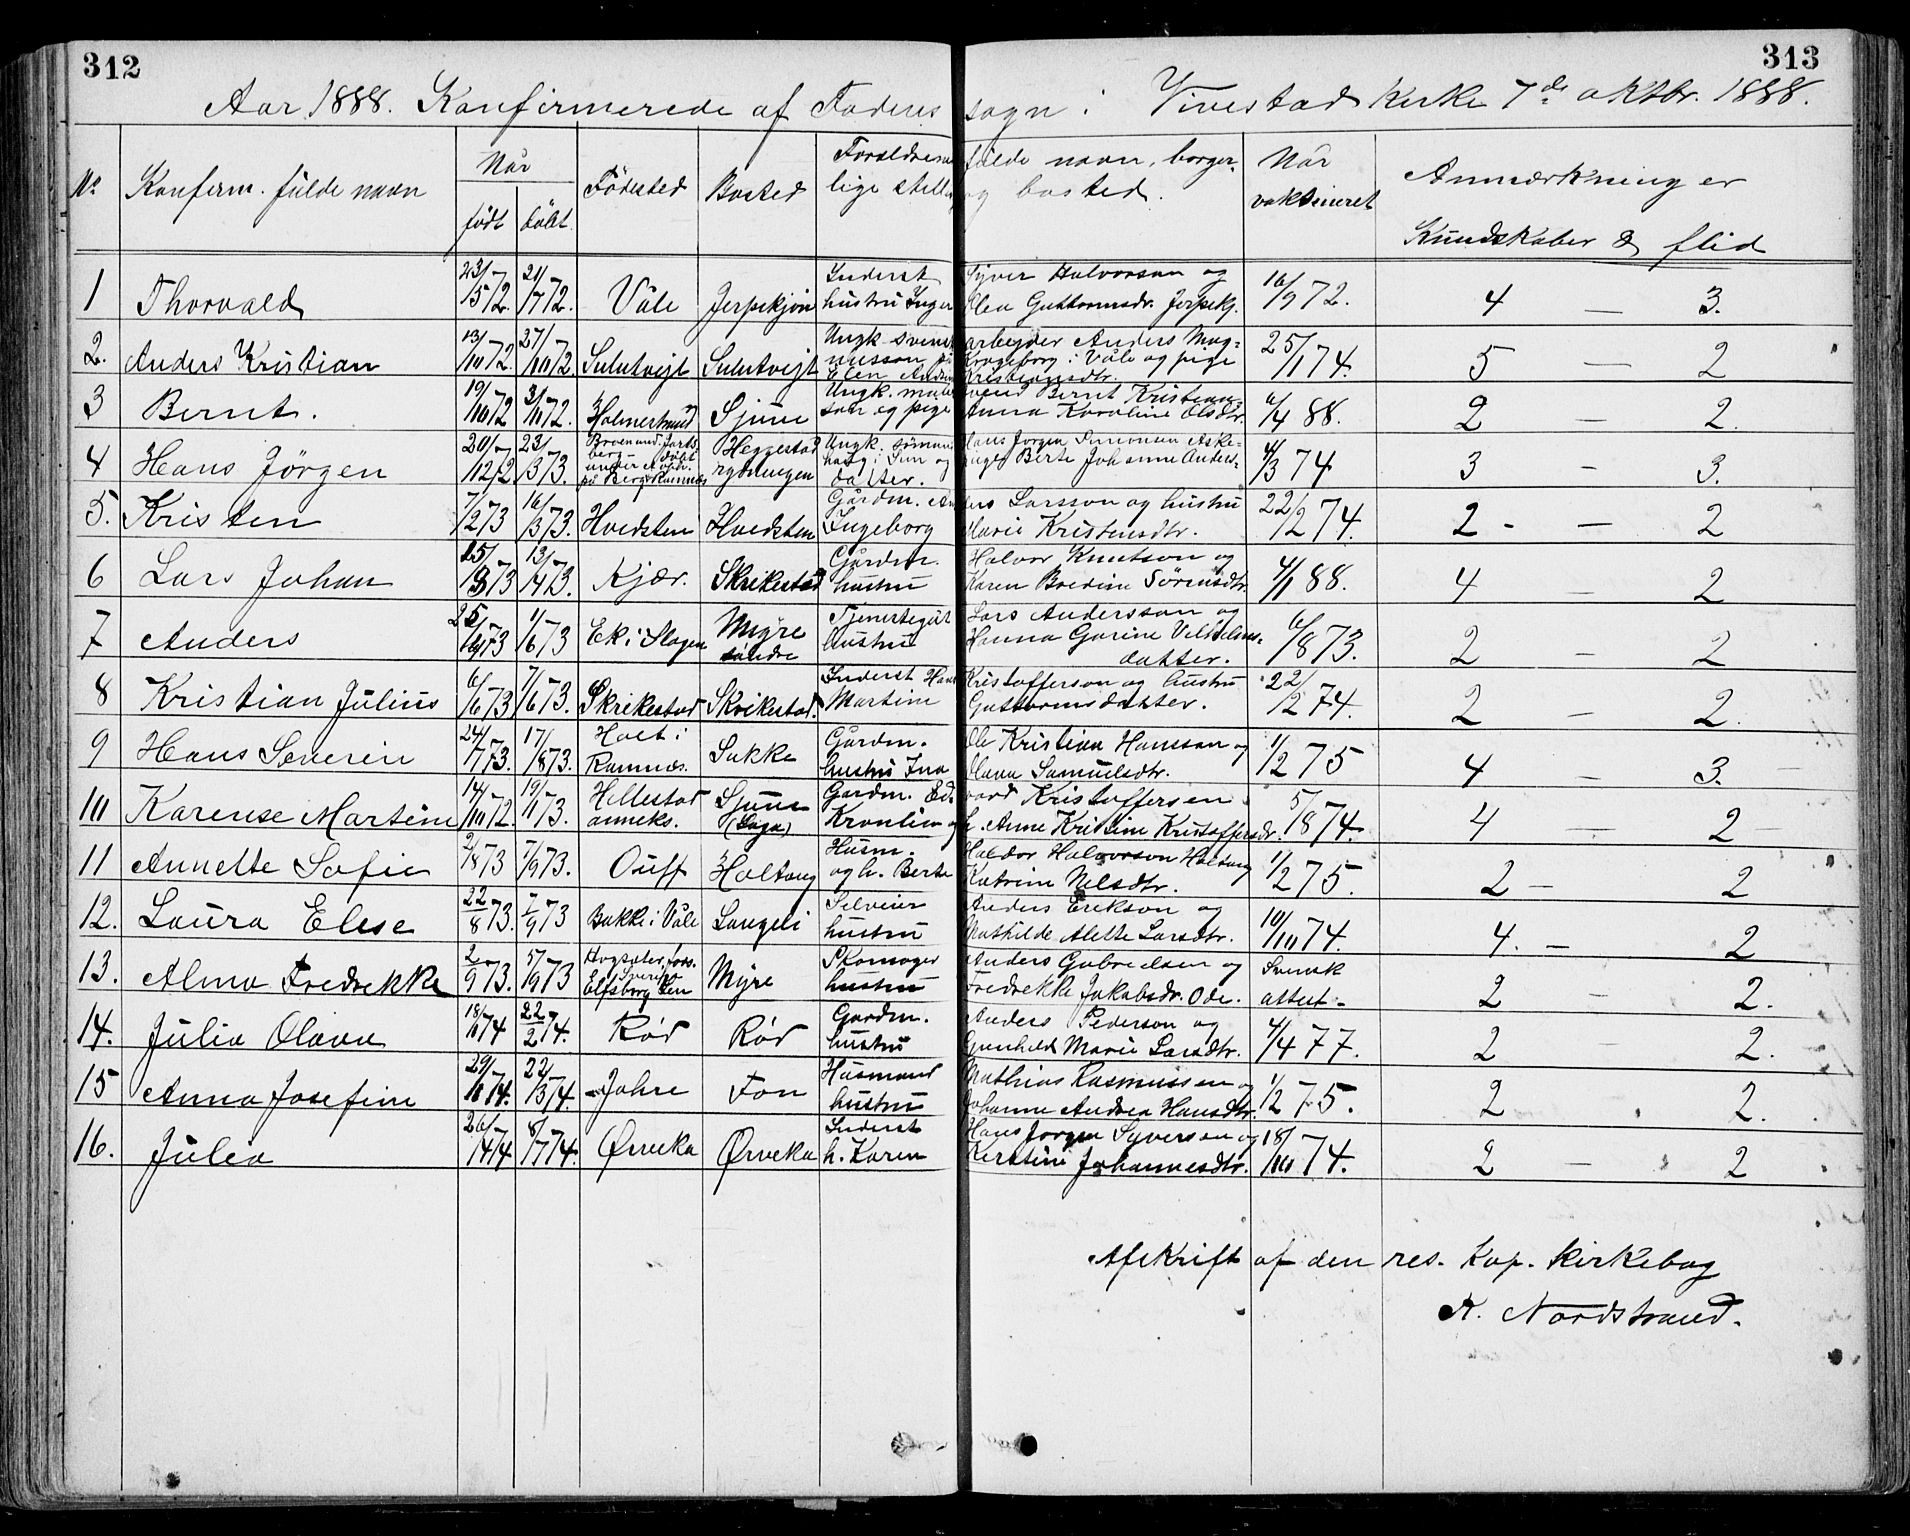 312
313
Aar 1888. Konfirmerede af Fadens sogn i Vivestad kirke 7de oktbr. 1888.
No Konfirm. fulde navn Når født døbt Fødested Bosted Forældrenes fulde navn, borger-
lige stilling og bosted. Når vaksineret Anmærkning er
Kundskaber & flid
1 Thorvald 23/5 72. 21/7 72. Våle Jerpekjøn Inderst Syver Halvorson og
hustru Inger Olea Guttormsdr. Jerpekj. 16/9 72. 4 — 3.
2. Anders Kristian 13/10 72. 27/10 72. Sulutvejt Sulutvejt Ungk. svensk arbejder Anders Mag-
nusson på Krageborg i Våle og pige
Elen Andrea Kristiansdtr. 25/1 74. 5 — 2
3 Bernt. 19/10 72 3/11 72. Holmestrand Sjuue Ungk. Bernt Kristian-
sen og pige Anna Karoline Olsdtr. 6/4 88. 2 — 2.
4 Hans Jørgen 20/12 72 23/3 73. Heggestad
rydningen Ungk. sømand Hans Jørgen Simonsen Aske-
haug i Sem og pige Berte Johanne Anders-
datter. 4/3 74 3 — 3.
5. Kristen 7/2 73 16/3 73. Hvidsten Hvidsten Gårdm. Anders Larsson og hustru
Ingeborg Marie Kristensdtr. 22/2 74. 2 - — 2
6 Lars Johan 13/4 73. Kjær. Skrikestad Gårdm. Halvor Knutson og
hustru Karen Bredine Sørensdtr. 4/1 88. 4 — 2
7 Anders 1/6 73 Ek i Slagen Myre
søndre Tjenestegut Lars Andersson og
hustru Hanna Garine Vilhelms-
datter. 6/8 73. 2 — 2
8 Kristian Julius 6/6 73 7/6 73. Skrikestad Skrikestad. Inderst Hans Kristofferson og hustru
Martine Guttormsdatter. 22/2 74. 2 — 2.
9 Hans Severin 24/7 73. 17/8 73. Holt i
Ramnæs. Sukke Gårdm. Ole Kristian Hansson og
hustru Ina Olava Samuelsdtr. 1/2 75 4 — 3.
10 Karense Martine 14/10 72. 19/1 73. Hillestad
anneks. Sjuue Gardm. Edvard Kristoffersen
Kronlia og h. Anne Kristine Kristoffersdr. 5/8 74. 4 — 2
11 Annette Sofie 2/8 73 7/9 73. Ouff Haltang Husm. Haldor Halvorson Haltang
og h. Berte Katrine Nilsdtr. 1/2 75. 2 — 2
12. Laura Elese 22/8 73. 7/9 73 Bakke i Våle Langeli Selveier Anders Erikson og
hustru Mathilde Alette Larsdtr. 10/10 74. 4. — 2
13. Alma Fredrekke 2/9 73. 5/9 73 Hogsæter, fors.
Elfsborg len Sverige Myre Skomager Anders Gabrielsen og
hustru Fredrekke Jakobsdr. Ode. Svensk
attest - 2 — 2.
14. Julie Olava 18/1 74 22/2 74. Rød Rød Gardm. Anders Pederson og
hustru Gunhild Marie Larsdtr. 4/4 77. 2 — 2.
15 Anna Josefine 29/1 74. 22/3 74. Jahre Fon Husmand Mathias Rasmussen og
hustru Johanne Andrea Hansdtr. 1/2 75. 2 2.
16. Julia 26/4 74 8/7 74. Ørveka Ørveka Inderst Hans Jørgen Syversen og
h. Karen Kerstine Johannesdtr. 18/10 74. 2 — 2
Afskrift af den res. Kap. Kirkebog
K. Nordstrand.